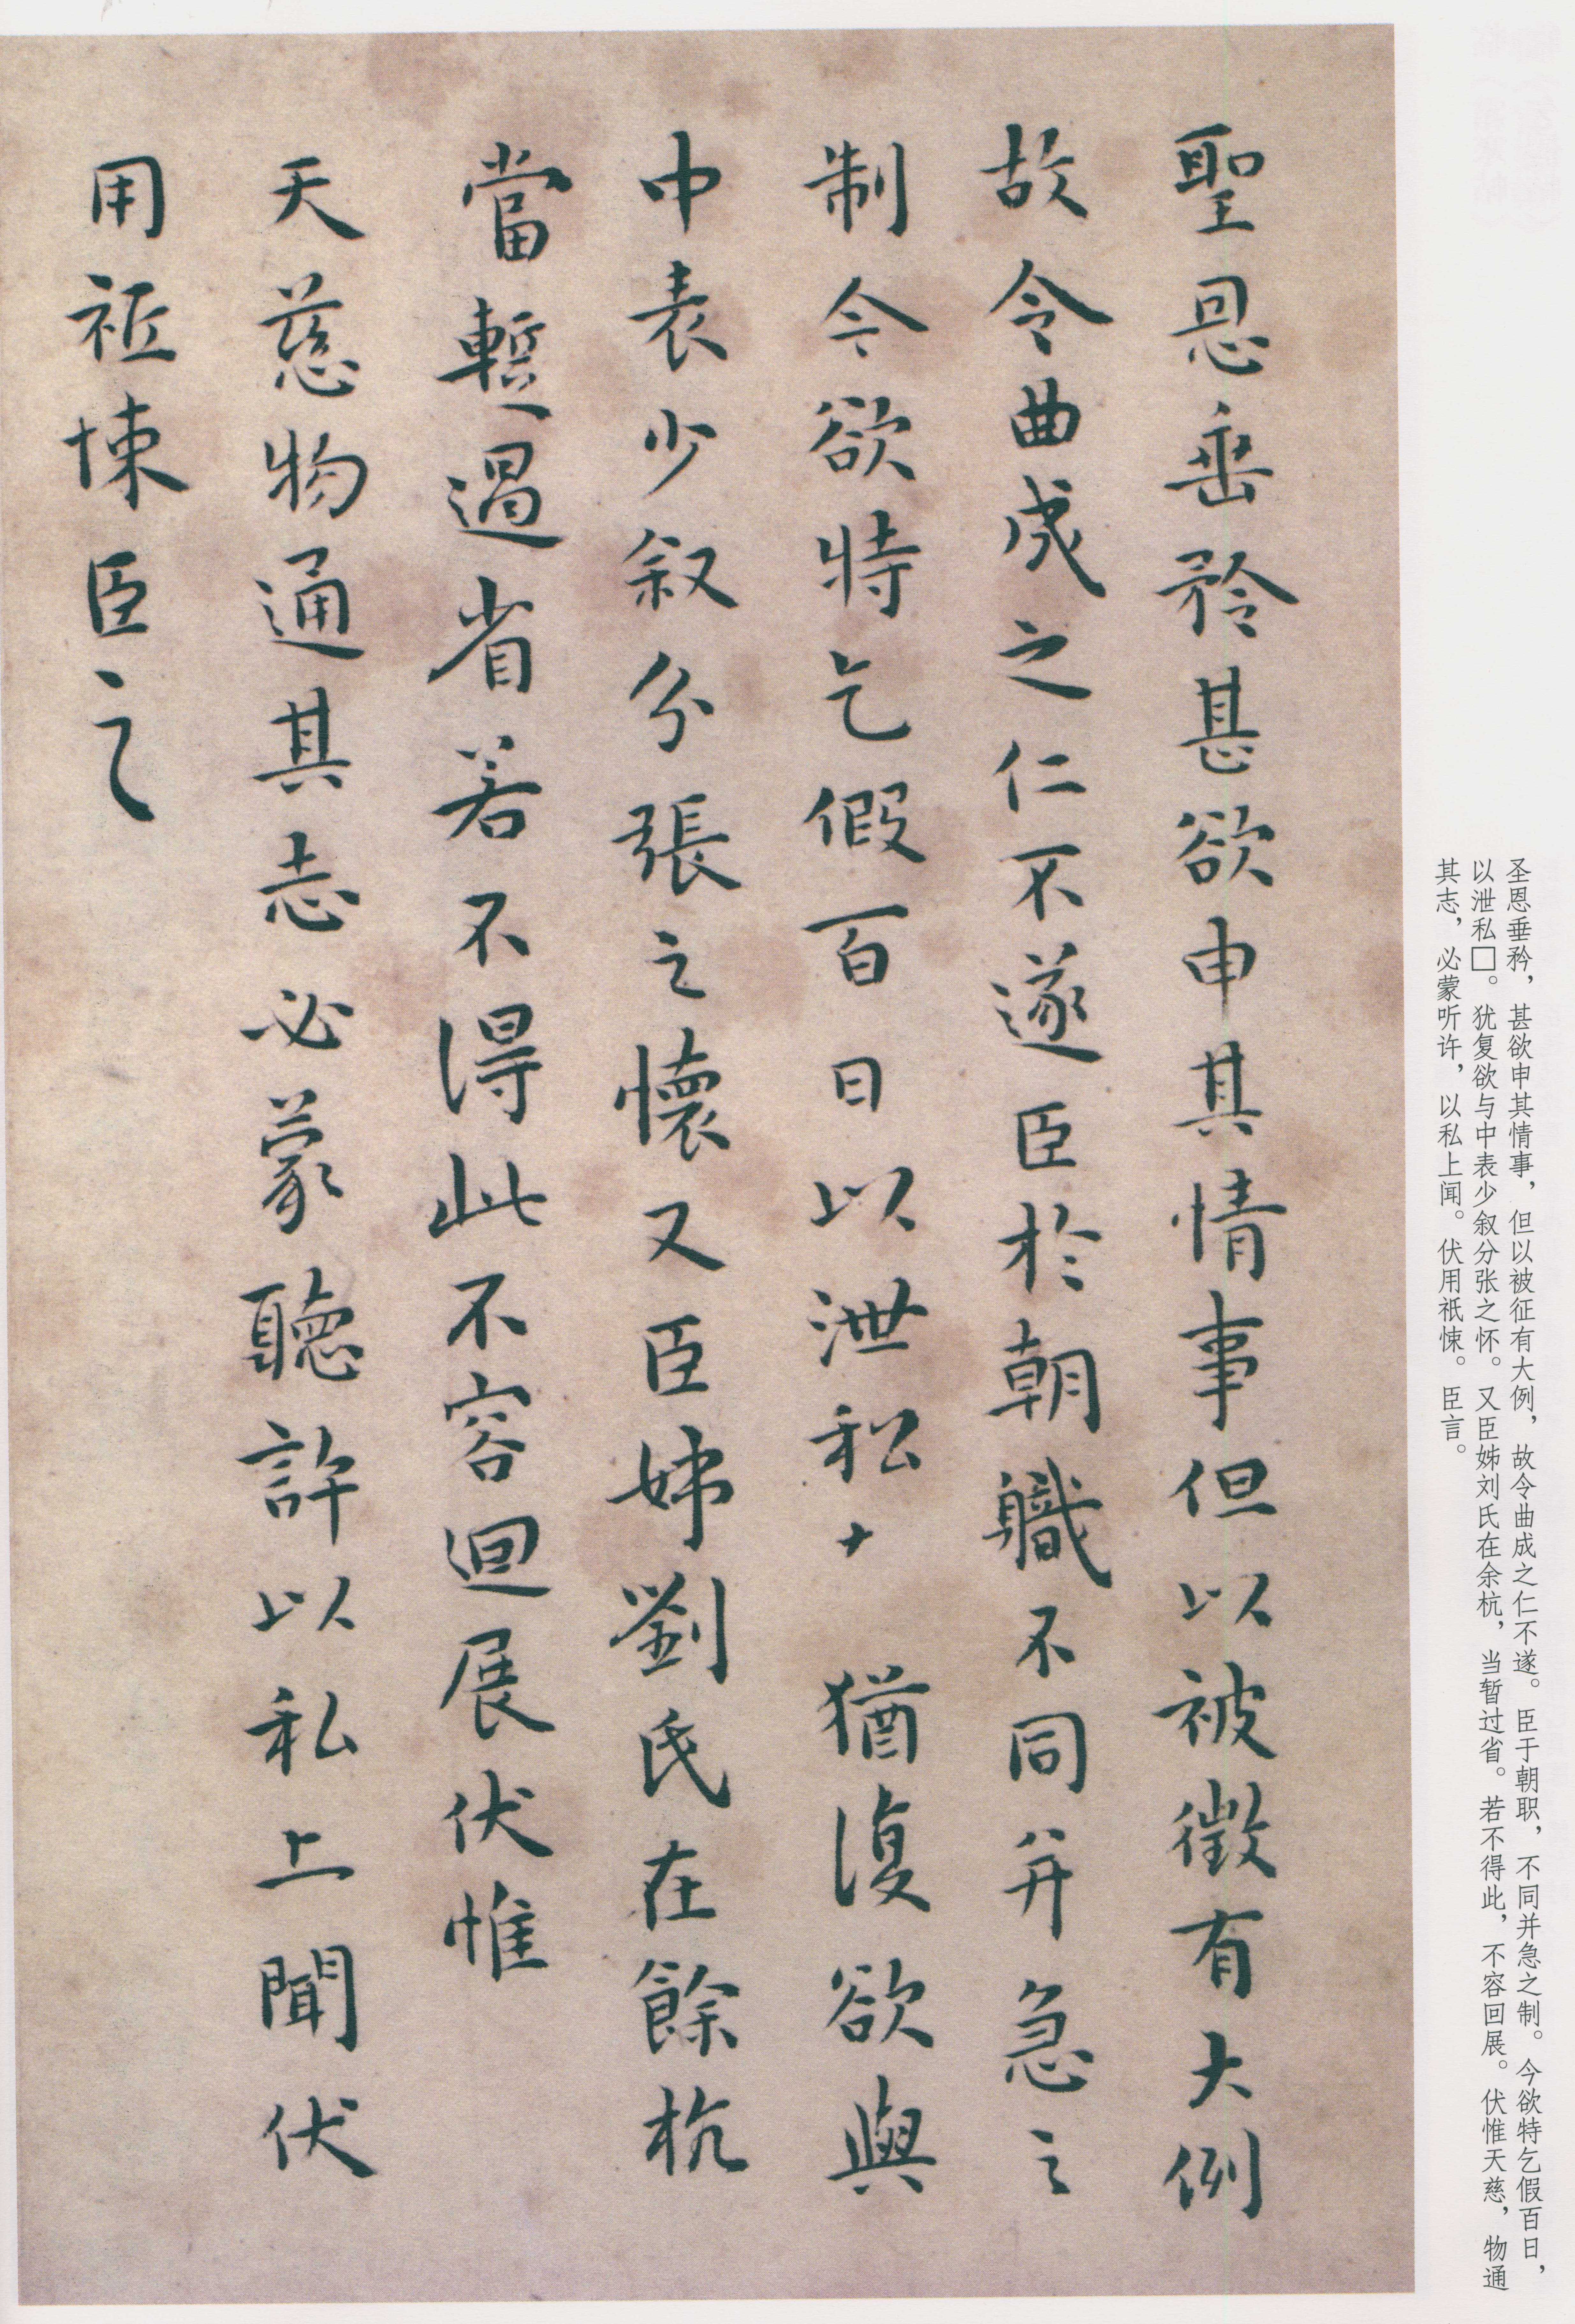 聖恩垂矜甚欲申其情事但以被徵有大例
故令曲成之仁不遂臣於朝職不同并急之
制今欲特乞假百日以泄私 猶復欲與
中表少叙分張之懷又臣姊劉氏在餘杭
當暫過省若不得此不容迴展伏惟
天慈物通其志必蒙聽許以私上聞伏
用祗悚臣言
圣恩垂矜，甚欲申其情事，但以被征有大例，故令曲成之仁不遂。臣于朝职，不同并急之制。今欲特乞假百日，
以泄私□。犹复欲与中表少叙分张之怀。又臣姊刘氏在余杭，当暂过省。若不得此，不容回展。伏惟天慈，物通
其志，必蒙听许，以私上闻。伏用祇悚。臣言。